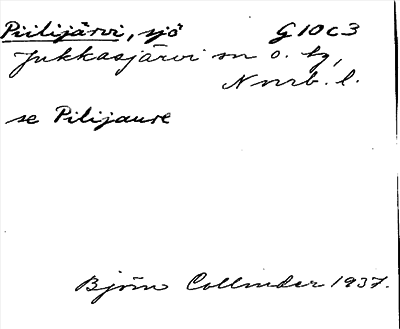 Piilijärvi, sjö G10c3
Jukkasjärvi sn o. tg,
Nnrb. l.
se Pilijaure
Björn Collinder 1937.